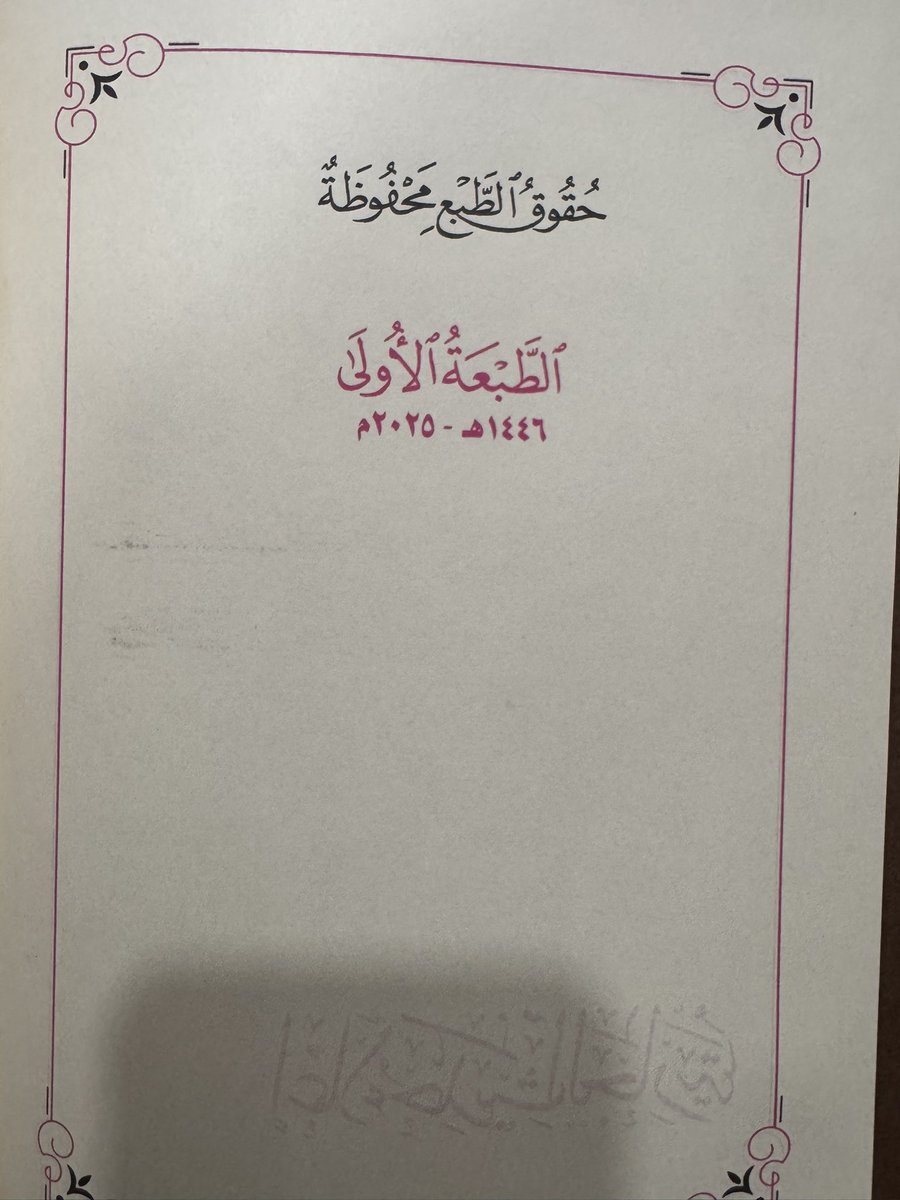 حُقُوقُ ٱلطَّبْعِ مَحْفُوظَةٌ
ٱلطَّبْعَةُ ٱلْأُولَىٰ
١٤٤٦هـ - ٢٠٢٥م